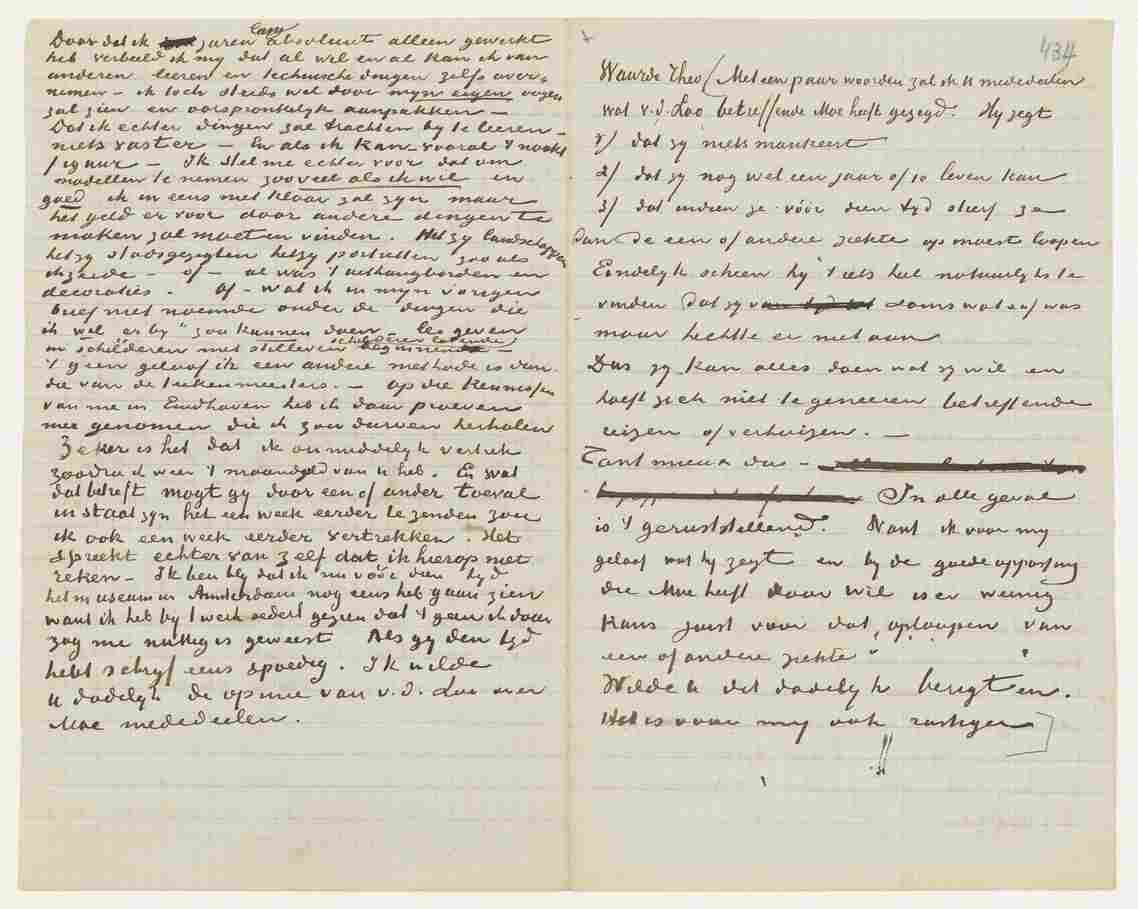 Door dat ik jaren lang absoluut alleen gewerkt
heb verbeeld ik my dat al wil en al kan ik van
anderen leeren en technische dingen zelfs over-
nemen – ik toch steeds wel door myn eigen oogen
zal zien en oorspronkelyk aanpakken –
Dat ik echter dingen zal trachten by te leeren –
niets vaster – En als ik kan vooral 't naakt
figuur – Ik stel me echter voor dat om
modellen te nemen zooveel als ik wil en
goed ik in eens niet klaar zal zyn maar
het geld er voor door andere dingen te
maken zal moeten vinden. Het zy landschappen
het zy stadsgezigten het zy portretten zoo als
ik zeide – of – al was 't uithangborden en
decoraties. Of – wat ik in myn vorigen
brief niet noemde onder de dingen die
ik wel "er by" zou kunnen doen – les geven
in schilderen met stilleven schilderen latende beginnende –
't geen geloof ik een andere methode is dan
die van de teekenmeesters. – Op die kennissen
van me in Eindhoven heb ik daar proeven
mee genomen die ik zou durven herhalen
Zeker is het dat ik onmiddelyk vertrek
zoodra ik weer 't maandgeld van u heb. En wat
dat betreft mogt gy door een of ander toeval
in staat zyn het een week eerder te zenden zou
ik ook een week eerder vertrekken. Het
spreekt echter van zelf dat ik hierop niet
reken – Ik ben bly dat ik nu vóór dien tyd
het museum in Amsterdam nog eens heb gaan zien
want ik heb by 't werk sedert gezien dat 't geen ik daar
zag me nuttig is geweest Als gy den tyd
hebt schryf eens spoedig. Ik wilde
u dadelyk de opinie van v.d. Loo over
Moe mededeelen.
434
Waarde Theo, Met een paar woorden zal ik u mededeelen
wat v.d. Loo betreffende Moe heeft gezegd. Hy zegt
1) dat zy niets mankeert
2) dat zy nog wel een jaar of 10 leven kan
3) dat indien ze vóór dien tyd stierf ze
dan de een of andere ziekte op moest loopen
Eindelyk scheen hy 't iets heel natuurlyks te
vinden dat zy soms wat af was
maar hechtte er niet aan
Dus zy kan alles doen wat zy wil en
hoeft zich niet te geneeren betreffende
reizen of verhuizen. –
Tant mieux dus –
In alle geval
is 't geruststellend. Want ik voor my
geloof wat hy zegt en by de goede oppassing
die Moe heeft daar Wil is er weinig
kans juist voor dat "oploopen van
een of andere ziekte"
Wilde u dit dadelyk berigten.
Het is voor my ook rustiger